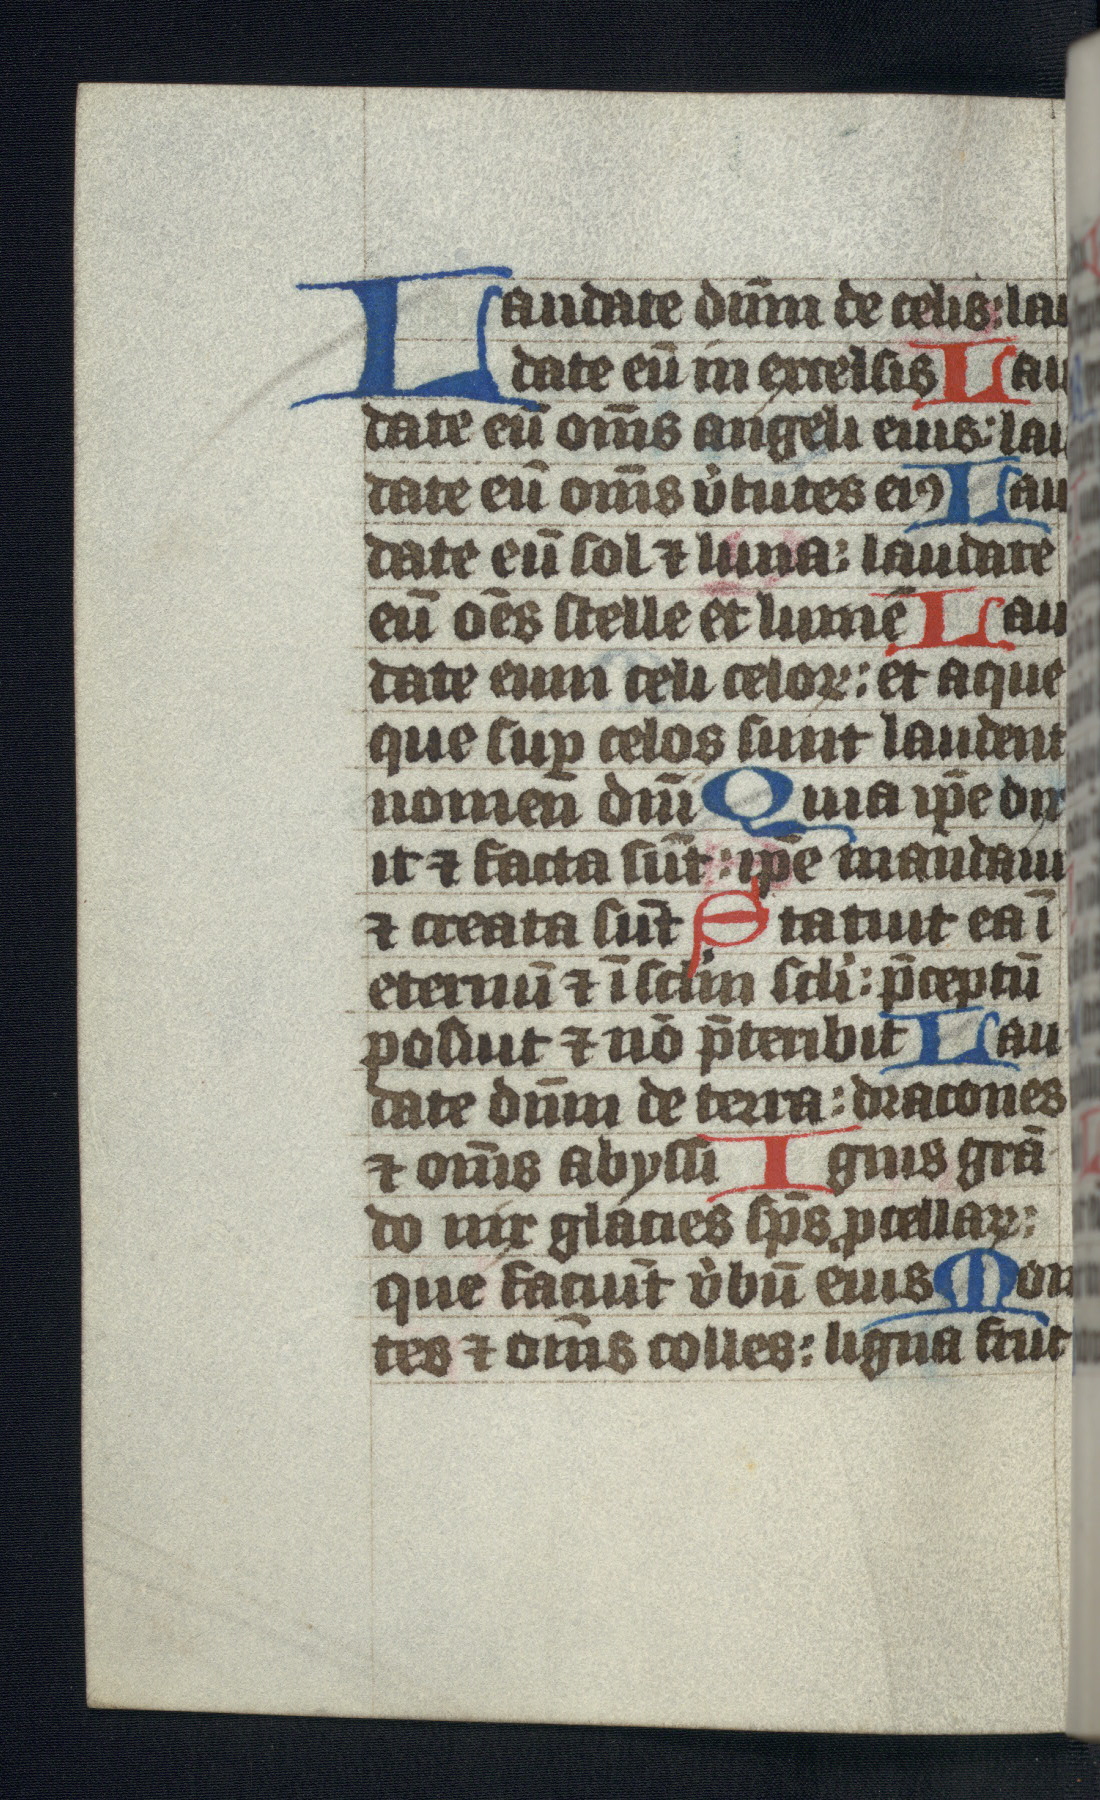 Laudate dūm de celis: lau
date eū in excelsis Lau
date eū om̄s angeli eius: lau
date eū om̄s v̓tutes eiꝰ Lau
date eū sol ⁊ luna: laudate
eū oēs stelle et lumē Lau
date eum celi celoꝝ: et aque
que suꝑ celos sunt laudent
nomen̄ dn̄i Quia ip̄e dix
it ⁊ facta sūt: ip̄e mandauit
⁊ creata sūt Statuit ea ī
eternū ⁊ ī sclm̄ scli̓: p̄ceptū
posuit ⁊ nō p̄teribit Lau
date dn̄m de terra: dracones
⁊ om̄s abyssi Ignis grā
do nix glacies sp̄s ꝓcellaꝝ:
que faciūt v̓bū eius Mon
tes ⁊ om̄s colles: ligna fruc